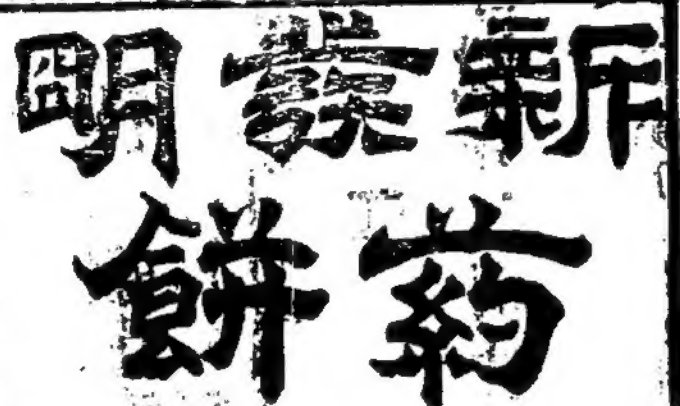 新發明
葯餅